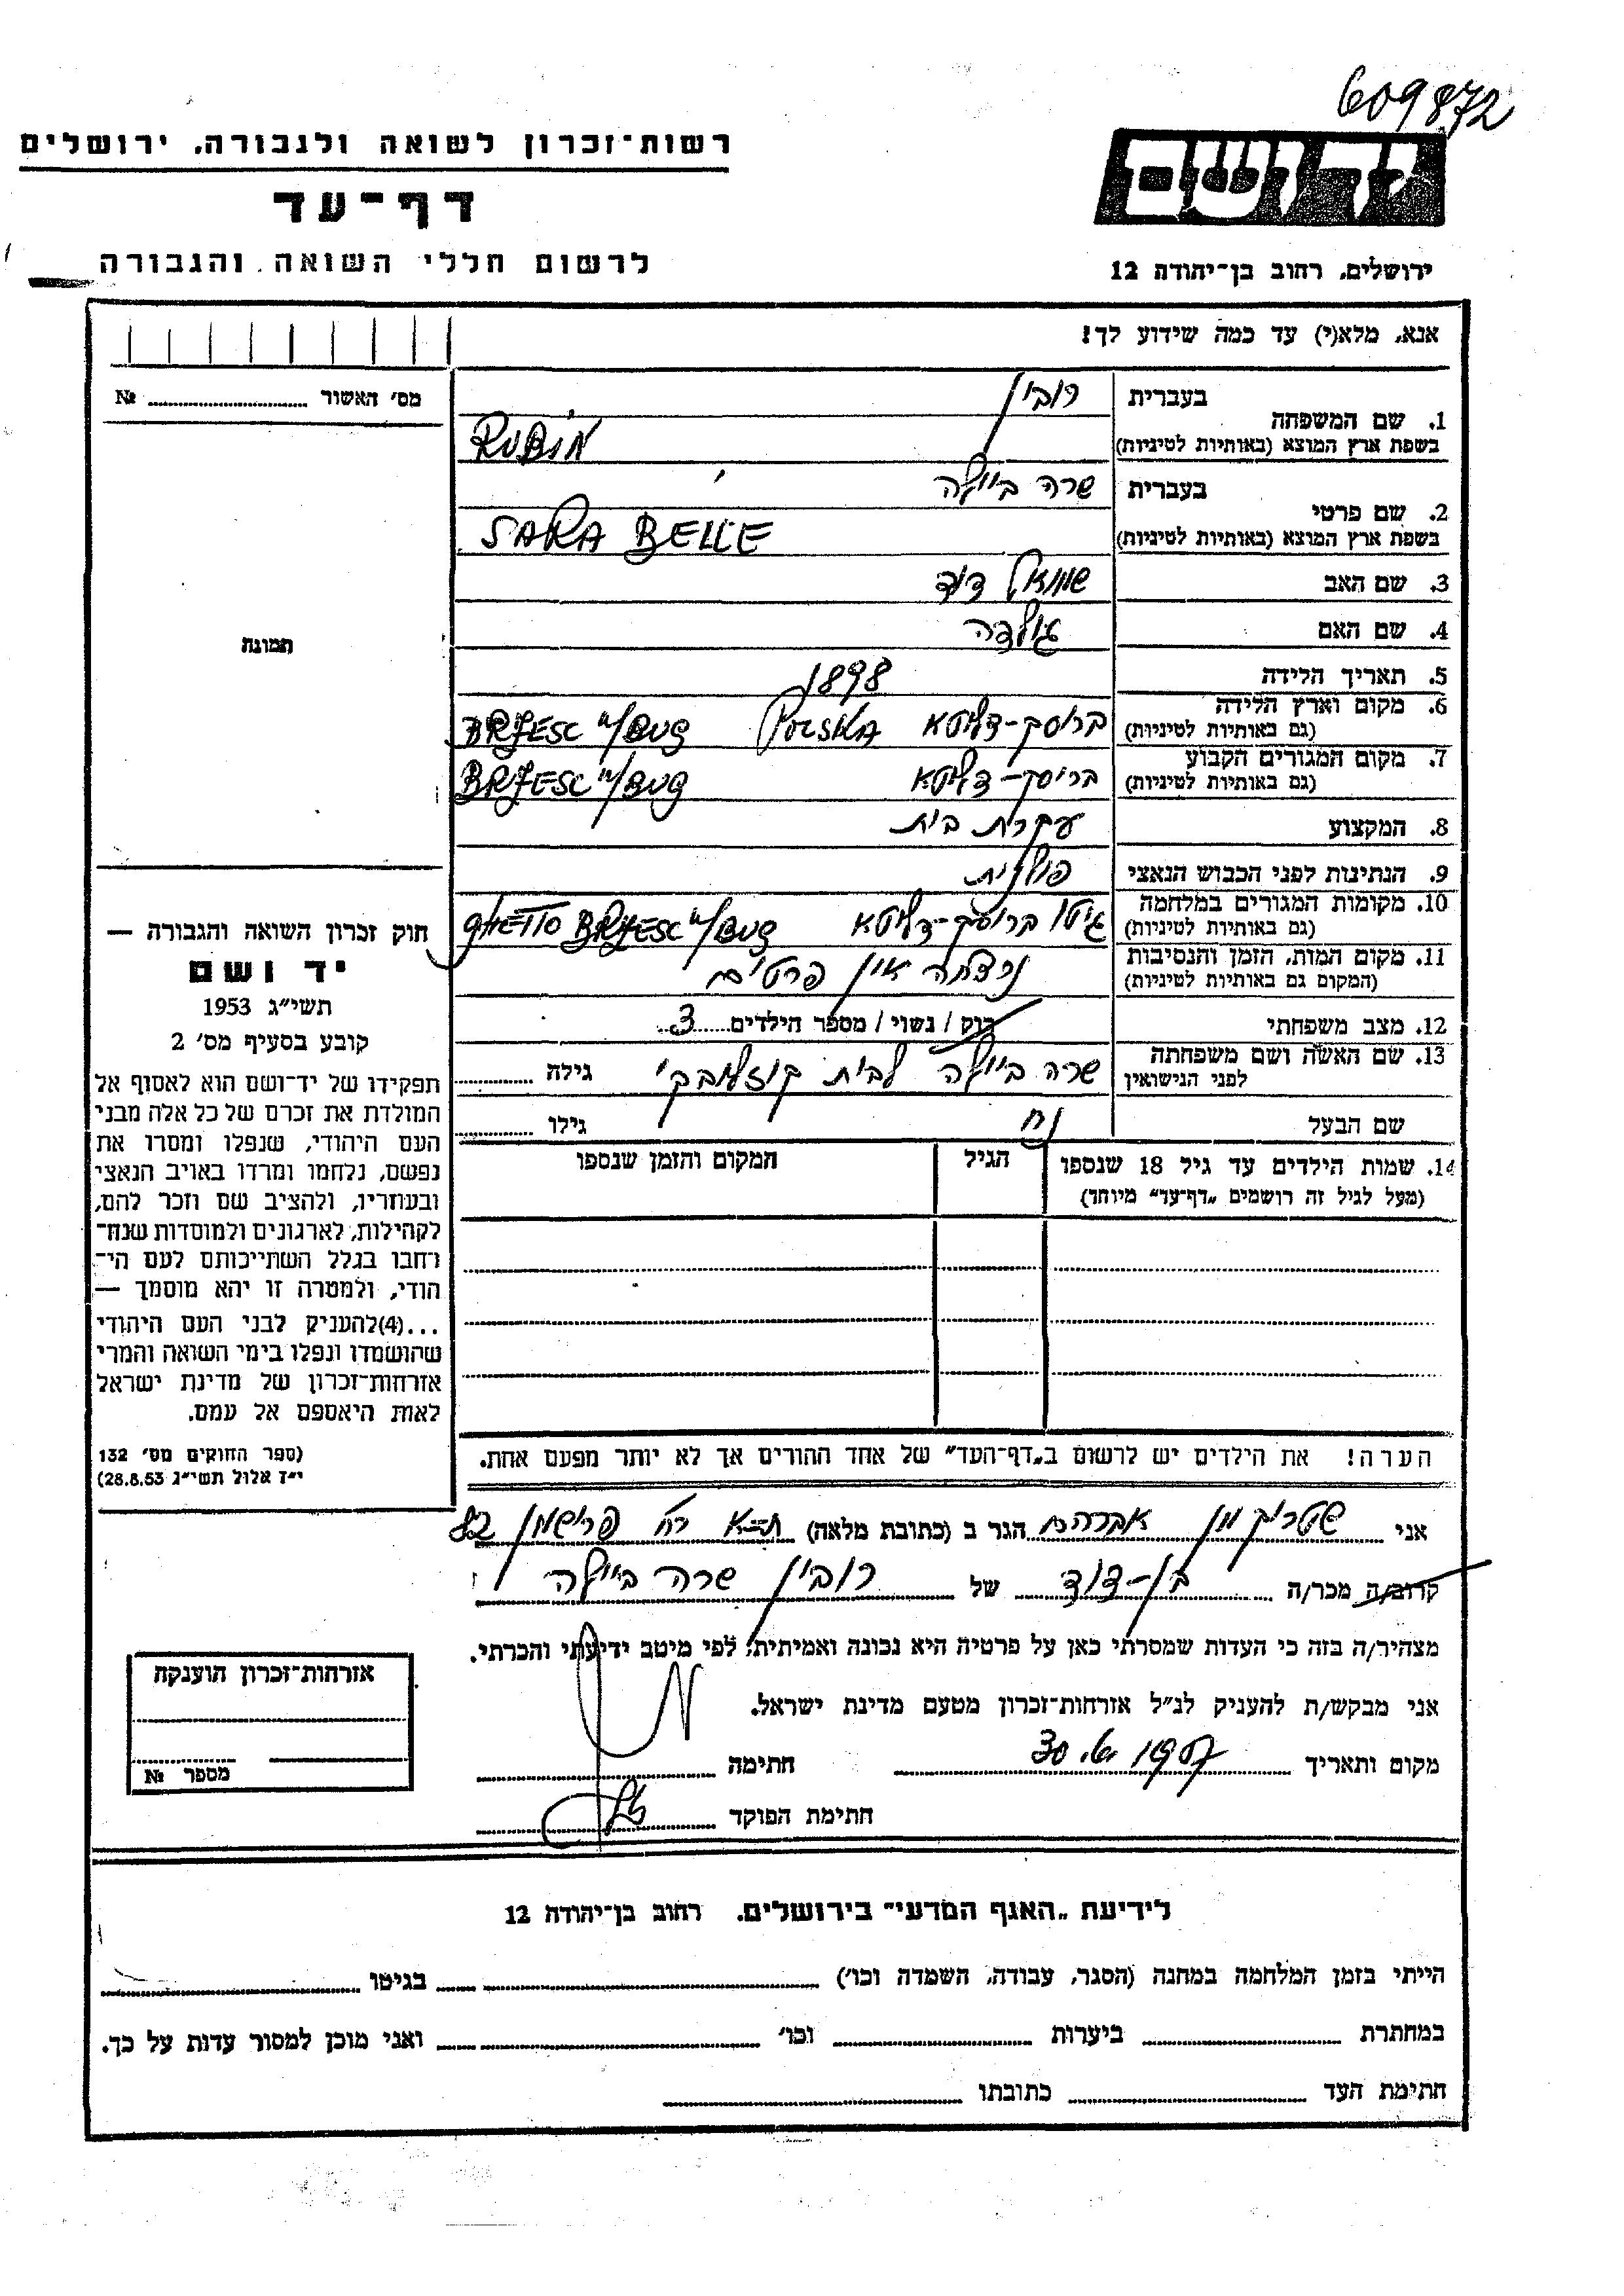 609872
רשות־זכרון לשואה ולגבורה, ירושלים
דף־עד
לרשום חללי השואה והגבורה
יד ושם
ירושלים, רחוב בן־יהודה 12
אנא, מלא(י) עד כמה שידוע לך!
מס׳ האשור №
1. שם המשפחה
בעברית רובין
בשפת ארץ המוצא (באותיות לטיניות) RUBIN
2. שם פרטי
בעברית שרה ביילה
בשפת ארץ המוצא (באותיות לטיניות) SARA BELLE
3. שם האב שמואל דוד
4. שם האם גולדה
5. תאריך הלידה 1898
6. מקום וארץ הלידה
(גם באותיות לטיניות) בריסק-דליטא POLSKA BRZESC n/BUG
7. מקום המגורים הקבוע
(גם באותיות לטיניות) בריסק-דליטא BRZESC n/BUG
8. המקצוע עקרת בית
9. הנתינות לפני הכבוש הנאצי פולנית
10. מקומות המגורים במלחמה
(גם באותיות לטיניות) גיטו בריסק-דליטא GHETTO BRZESC n/BUG
11. מקום המות, הזמן והנסיבות
(המקום גם באותיות לטיניות) נרצחה אין פרטים
12. מצב משפחתי רוק / נשוי / מספר הילדים 3
13. שם האשה ושם משפחתה
לפני הנישואין שרה ביילה לבית גילה
שם הבעל נח גילו
14. שמות הילדים עד גיל 18 שנספו
(מעל לגיל זה רושמים „דף־עד" מיוחד)
הגיל
המקום והזמן שנספו
הערה! את הילדים יש לרשום ב„דף־העד" של אחד ההורים אך לא יותר מפעם אחת.
תמונה
חוק זכרון השואה והגבורה —
יד ושם
תשי״ג 1953
קובע בסעיף מס׳ 2
תפקידו של יד־ושם הוא לאסוף אל
המולדת את זכרם של כל אלה מבני
העם היהודי, שנפלו ומסרו את
נפשם, נלחמו ומרדו באויב הנאצי
ובעוזריו, ולהציב שם וזכר להם,
לקהילות, לארגונים ולמוסדות שנח־
רחבו בגלל השתייכותם לעם הי־
הודי, ולמטרה זו יהא מוסמך —
...(4)להעניק לבני העם היהודי
שהושמדו ונפלו בימי השואה והמרי
אזרחות־זכרון של מדינת ישראל
לאות היאספם אל עמם.
(ספר החוקים מס׳ 132
י״ז אלול תשי״ג 28.8.53)
אני שטריקמן אברהם הגר ב (כתובת מלאה) ת-א רח פרישמן 82
קרוב/ה מכר/ה בן-דוד של רובין שרה ביילה
מצהיר/ה בזה כי העדות שמסרתי כאן על פרטיה היא נכונה ואמיתית, לפי מיטב ידיעתי והכרתי.
אני מבקש/ת להעניק לנ״ל אזרחות־זכרון מטעם מדינת ישראל.
מקום ותאריך חתימה
חתימת הפוקד
אזרחות־זכרון הוענקה
מספר №
לידיעת „האגף המדעי" בירושלים, רחוב בן־יהודה 12
הייתי בזמן המלחמה במחנה (הסגר, עבודה, השמדה וכו׳) בגיטו
במחתרת ביערות וכו׳ ואני מוכן למסור עדות על כך.
חתימת העד כתובתו